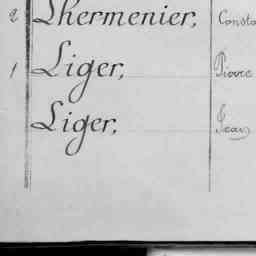 2 Lhermenier, Consta
1 Liger, Pierre
Liger, Jean